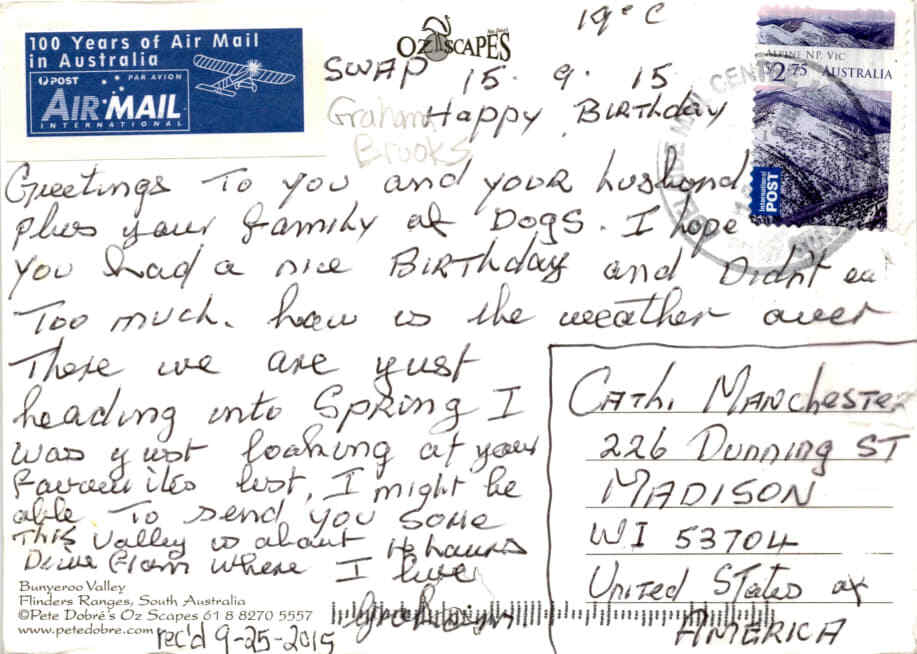 100 Years of Air Mail
in Australia
POST
PAR AVION
AIR MAIL
INTERNATIONAL
OZ SCAPES
19°C
SWAP 15.9.15
Happy Birthday
Graham
Brooks
ALPINE NP, VIC
$2.75 AUSTRALIA
International
POST
Greetings To you and your husband
plus your family of Dogs. I hope
you had a nice BIRThday and Didn't eat
Too much. how is the weather over
There we are yust
heading into Spring I
was yust looking at your
Favourites list, I might be
able To send you some
This Valley is about 4 hours
Drive From where I live
Graham
CAThi MANchesTer
226 Dunning ST
MADISON
WI 53704
United States of
AMERICA
Bunyeroo Valley
Flinders Ranges, South Australia
©Pete Dobré's Oz Scapes 61 8 8270 5557
www.petedobre.com
rec'd 9-25-2015